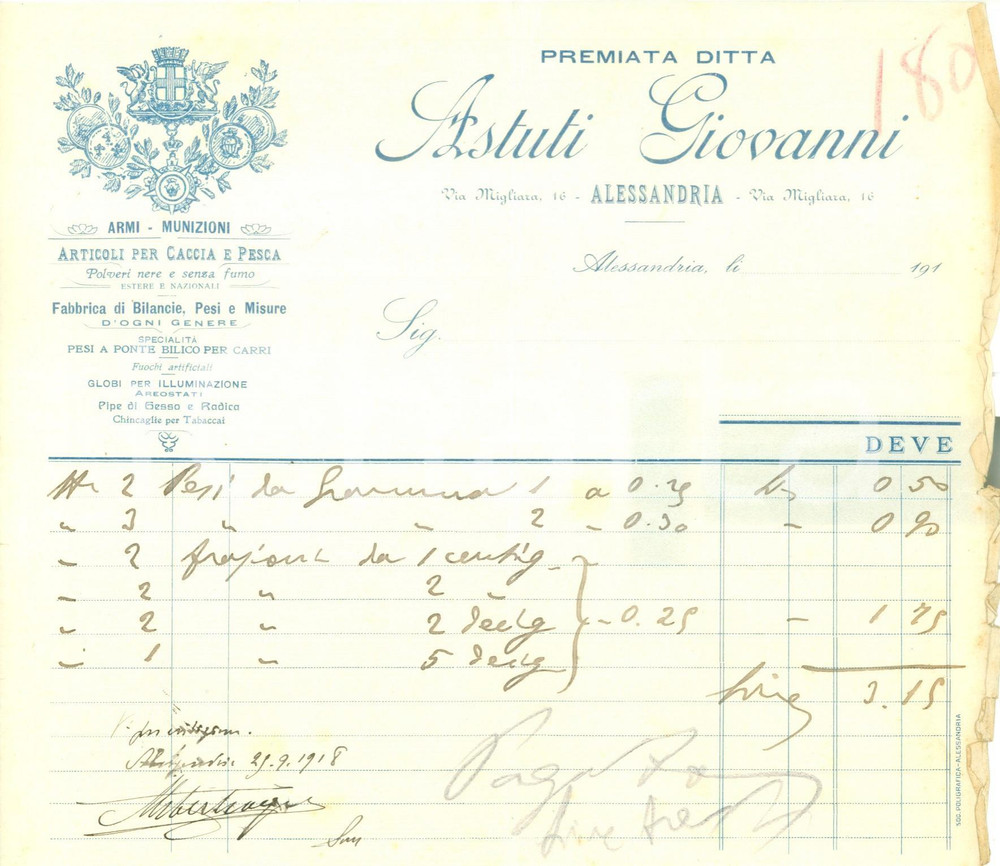 PREMIATA DITTA
Astuti Giovanni
Via Migliara, 16 - ALESSANDRIA - Via Migliara, 16
180
ARMI - MUNIZIONI
ARTICOLI PER CACCIA E PESCA
Polveri nere e senza fumo
ESTERE E NAZIONALI
Fabbrica di Bilancie, Pesi e Misure
D'OGNI GENERE
SPECIALITÀ
PESI A PONTE BILICO PER CARRI
Fuochi artificiali
GLOBI PER ILLUMINAZIONE
AREOSTATI
Pipe di Gesso e Radica
Chincaglie per Tabaccai
Alessandria, li 191
Sig.
DEVE
2 Pesi da Gramma 1 a 0.25 0 50
" 3 " " 2 - 0.30 - 0 90
" 2 frazioni da 1 centig
" 2 " 2 "
" 2 " 2 decig - 0.25 - 1 75
" 1 " 5 decig
Lire 3.15
Alessandria 25.9.1918
Pagato
Lire
SOC. POLIGRAFICA-ALESSANDRIA